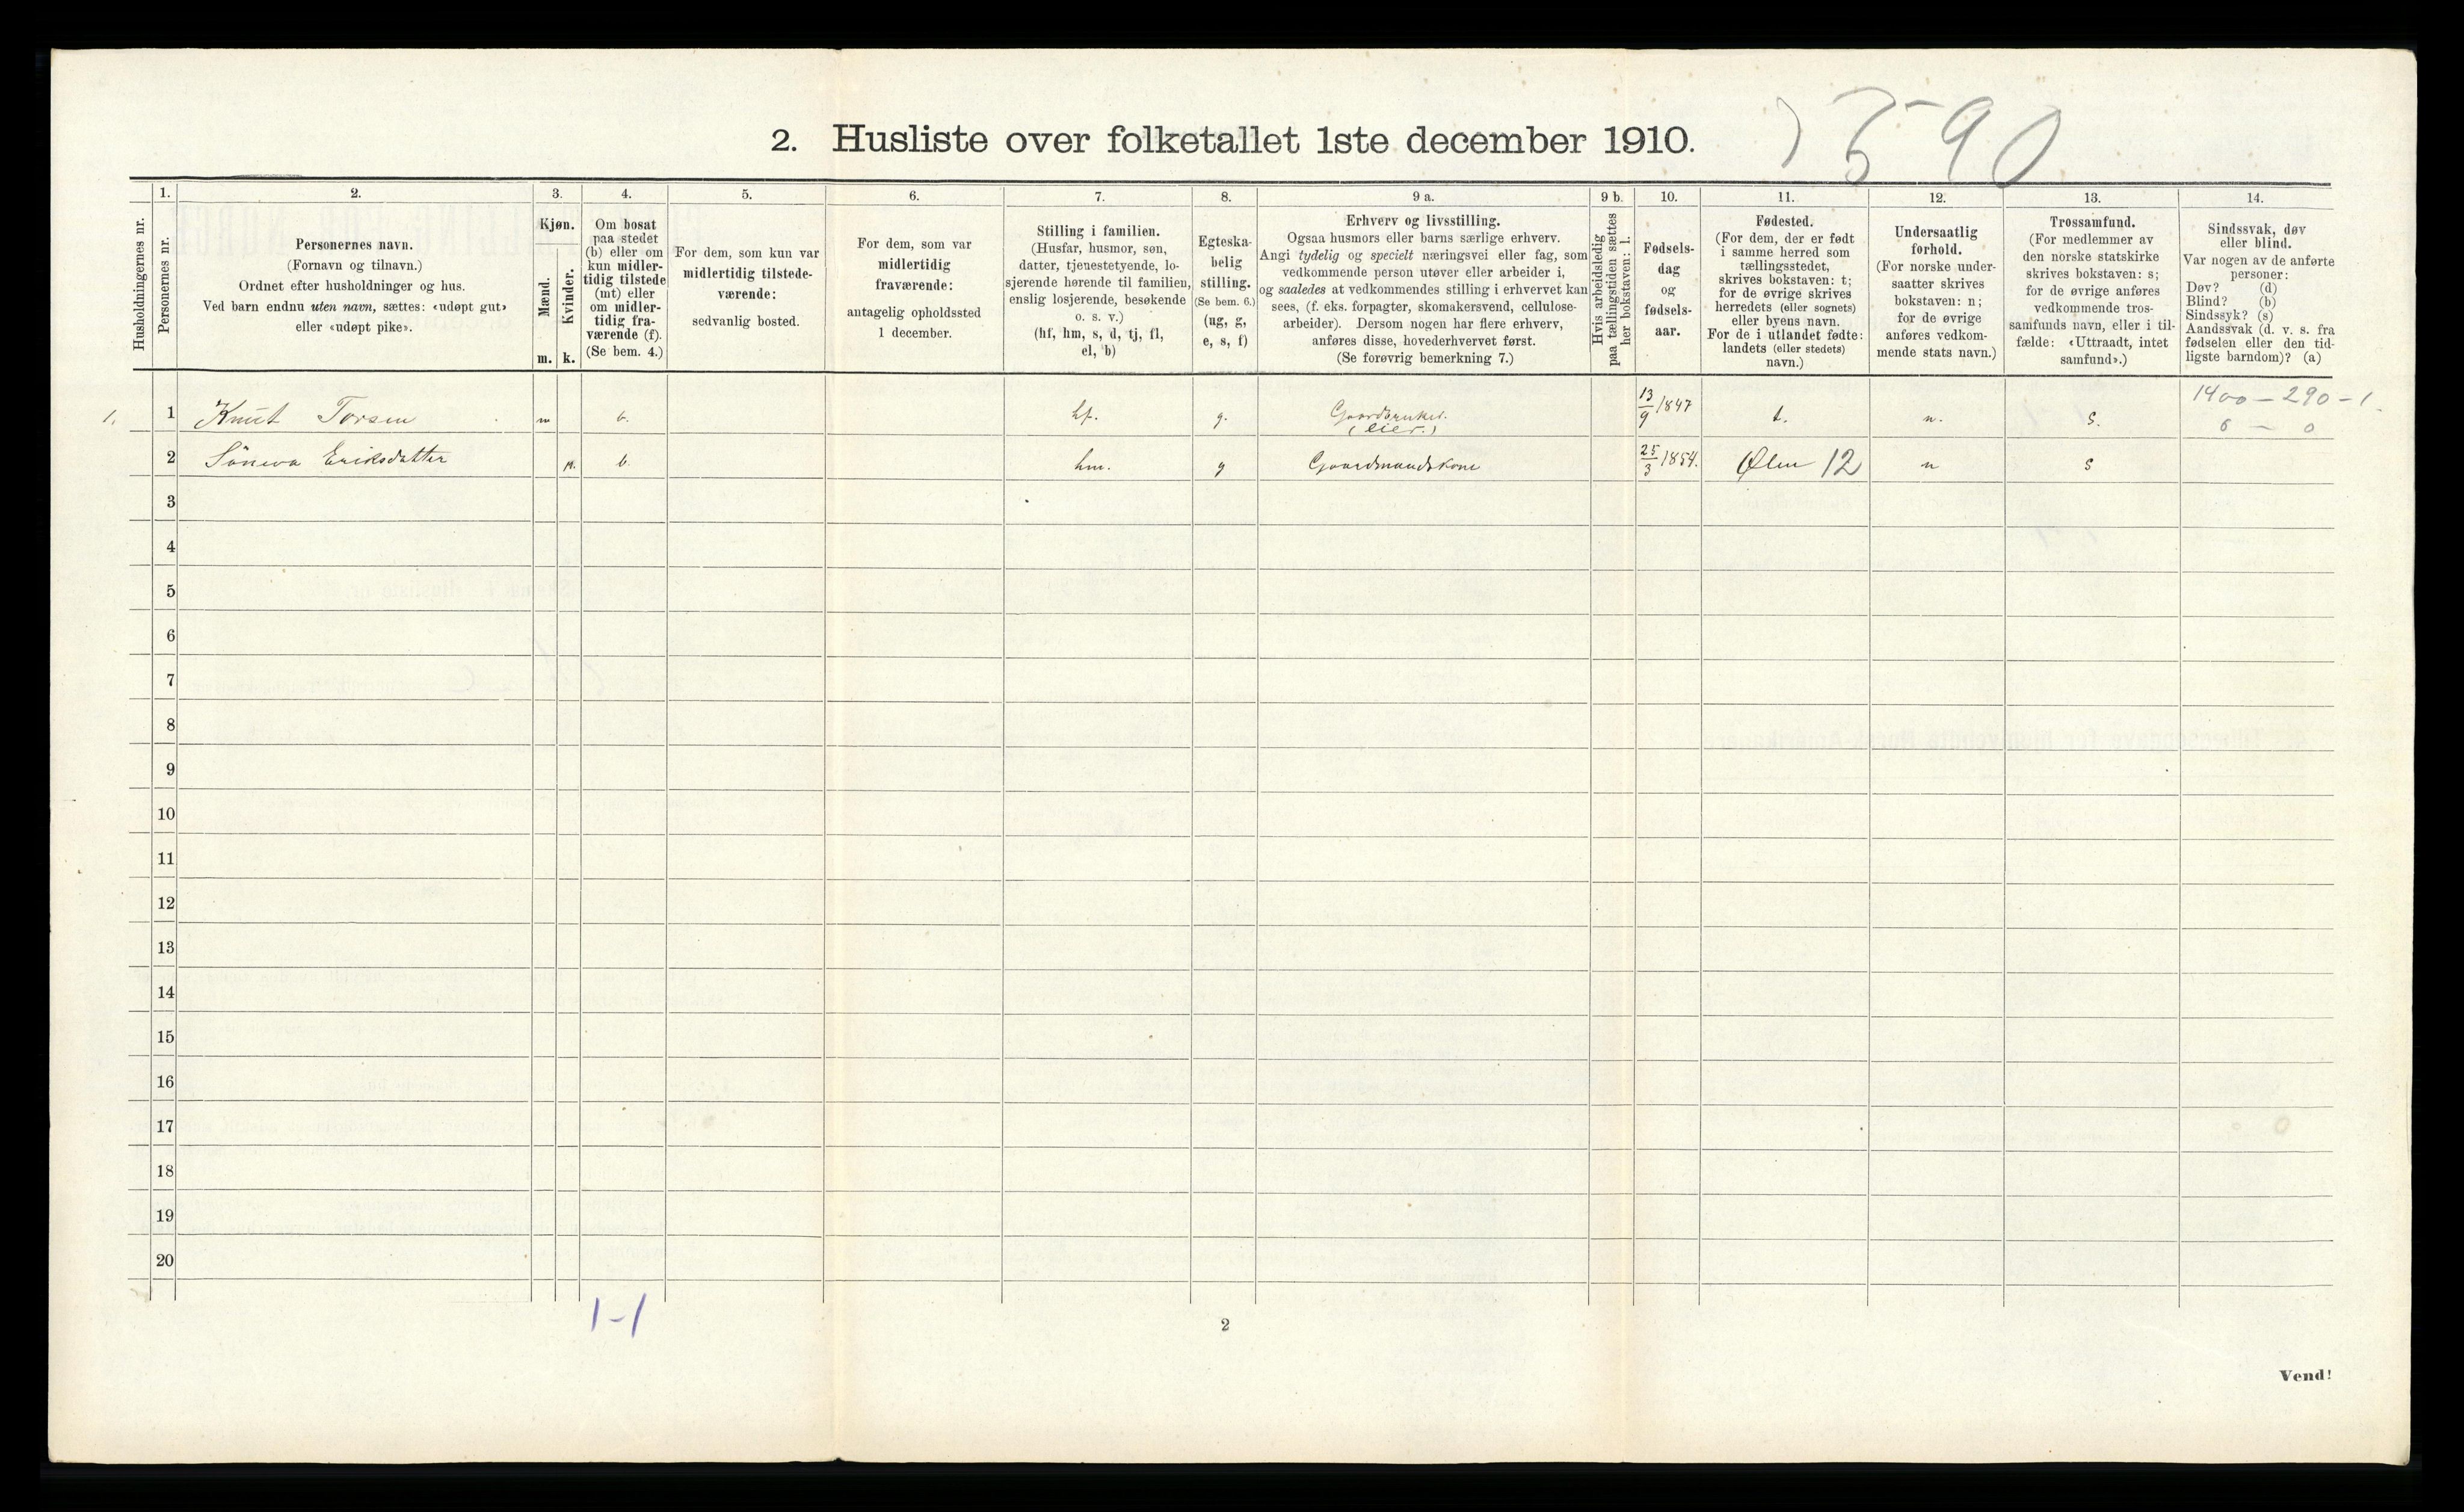 2. Husliste over folketallet 1ste december 1910.
590
1.
2.
3.
4.
5.
6.
7.
8.
9 a.
9 b.
10.
11.
12.
13.
14.
Husholdningernes nr.
Personernes nr.
Personernes navn.
(Fornavn og tilnavn.)
Ordnet efter husholdninger og hus.
Ved barn endnu uten navn, sættes: «udøpt gut»
eller «udøpt pike».
Kjøn.
Mænd.
Kvinder.
m. k.
Om bosat
paa stedet
(b) eller om
kun midler-
tidig tilstede
(mt) eller
om midler-
tidig fra-
værende (f).
(Se bem. 4.)
For dem, som kun var
midlertidig tilstede-
værende:
sedvanlig bosted.
For dem, som var
midlertidig
fraværende:
antagelig opholdssted
1 december.
Stilling i familien.
(Husfar, husmor, søn,
datter, tjenestetyende, lo-
sjerende hørende til familien,
enslig losjerende, besøkende
o. s. v.)
(hf, hm, s, d, tj, fl,
el, b)
Egteska-
belig
stilling.
(Se bem. 6.)
(ug, g,
e, s, f)
Erhverv og livsstilling.
Ogsaa husmors eller barns særlige erhverv.
Angi tydelig og specielt næringsvei eller fag, som
vedkommende person utøver eller arbeider i,
og saaledes at vedkommendes stilling i erhvervet kan
sees, (f. eks. forpagter, skomakersvend, cellulose-
arbeider). Dersom nogen har flere erhverv,
anføres disse, hovederhvervet først.
(Se forøvrig bemerkning 7.)
Hvis arbeidsledig
paa tællingstiden sættes
her bokstaven: l.
Fødsels-
dag
og
fødsels-
aar.
Fødested.
(For dem, der er født
i samme herred som
tællingsstedet,
skrives bokstaven: t;
for de øvrige skrives
herredets (eller sognets)
eller byens navn.
For de i utlandet fødte:
landets (eller stedets)
navn.)
Undersaatlig
forhold.
(For norske under-
saatter skrives
bokstaven: n;
for de øvrige
anføres vedkom-
mende stats navn.)
Trossamfund.
(For medlemmer av
den norske statskirke
skrives bokstaven: s;
for de øvrige anføres
vedkommende tros-
samfunds navn, eller i til-
fælde: «Uttraadt, intet
samfund».)
Sindssvak, døv
eller blind.
Var nogen av de anførte
personer:
Døv? (d)
Blind? (b)
Sindssyk? (s)
Aandssvak (d. v. s. fra
fødselen eller den tid-
ligste barndom)? (a)
1400 – 290 – 1.
0 – 0
1. 1 Knut Torsen m b. hf. g. Gaardbruker. (eier.) 13/9 1847 t. n. s.
2 Söneva Eriksdatter k. b. hm. g Gaardmandskone 25/3 1854. Ølen 12 n s
3
4
5
6
7
8
9
10
11
12
13
14
15
16
17
18
19
20
1-1
2
Vend!